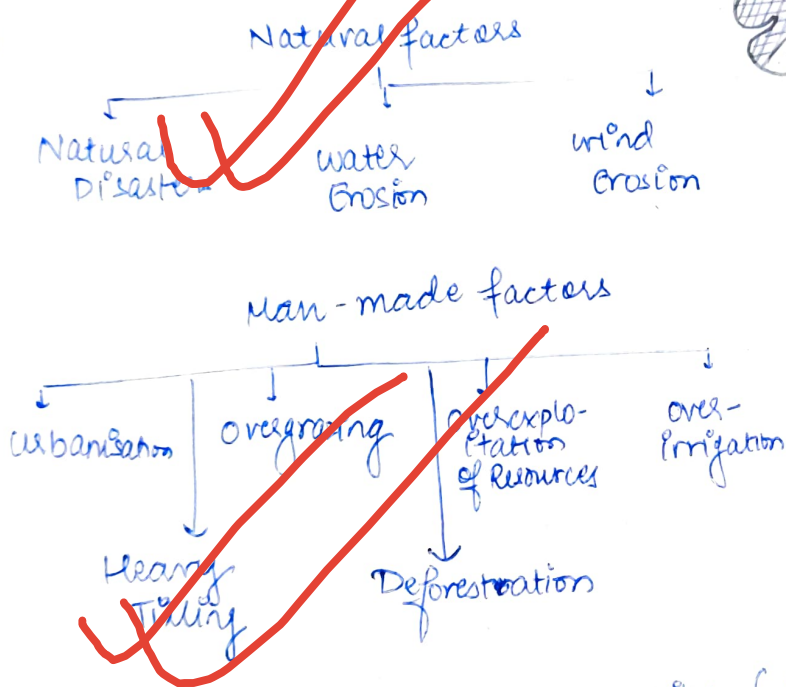 Natural factors
Natural
Disaster
water
Erosion
wind
Erosion
Man-made factors
Urbanisation
Overgrazing
overexplo-
itation
of Resources
over-
irrigation
Heavy
Tilling
Deforestration